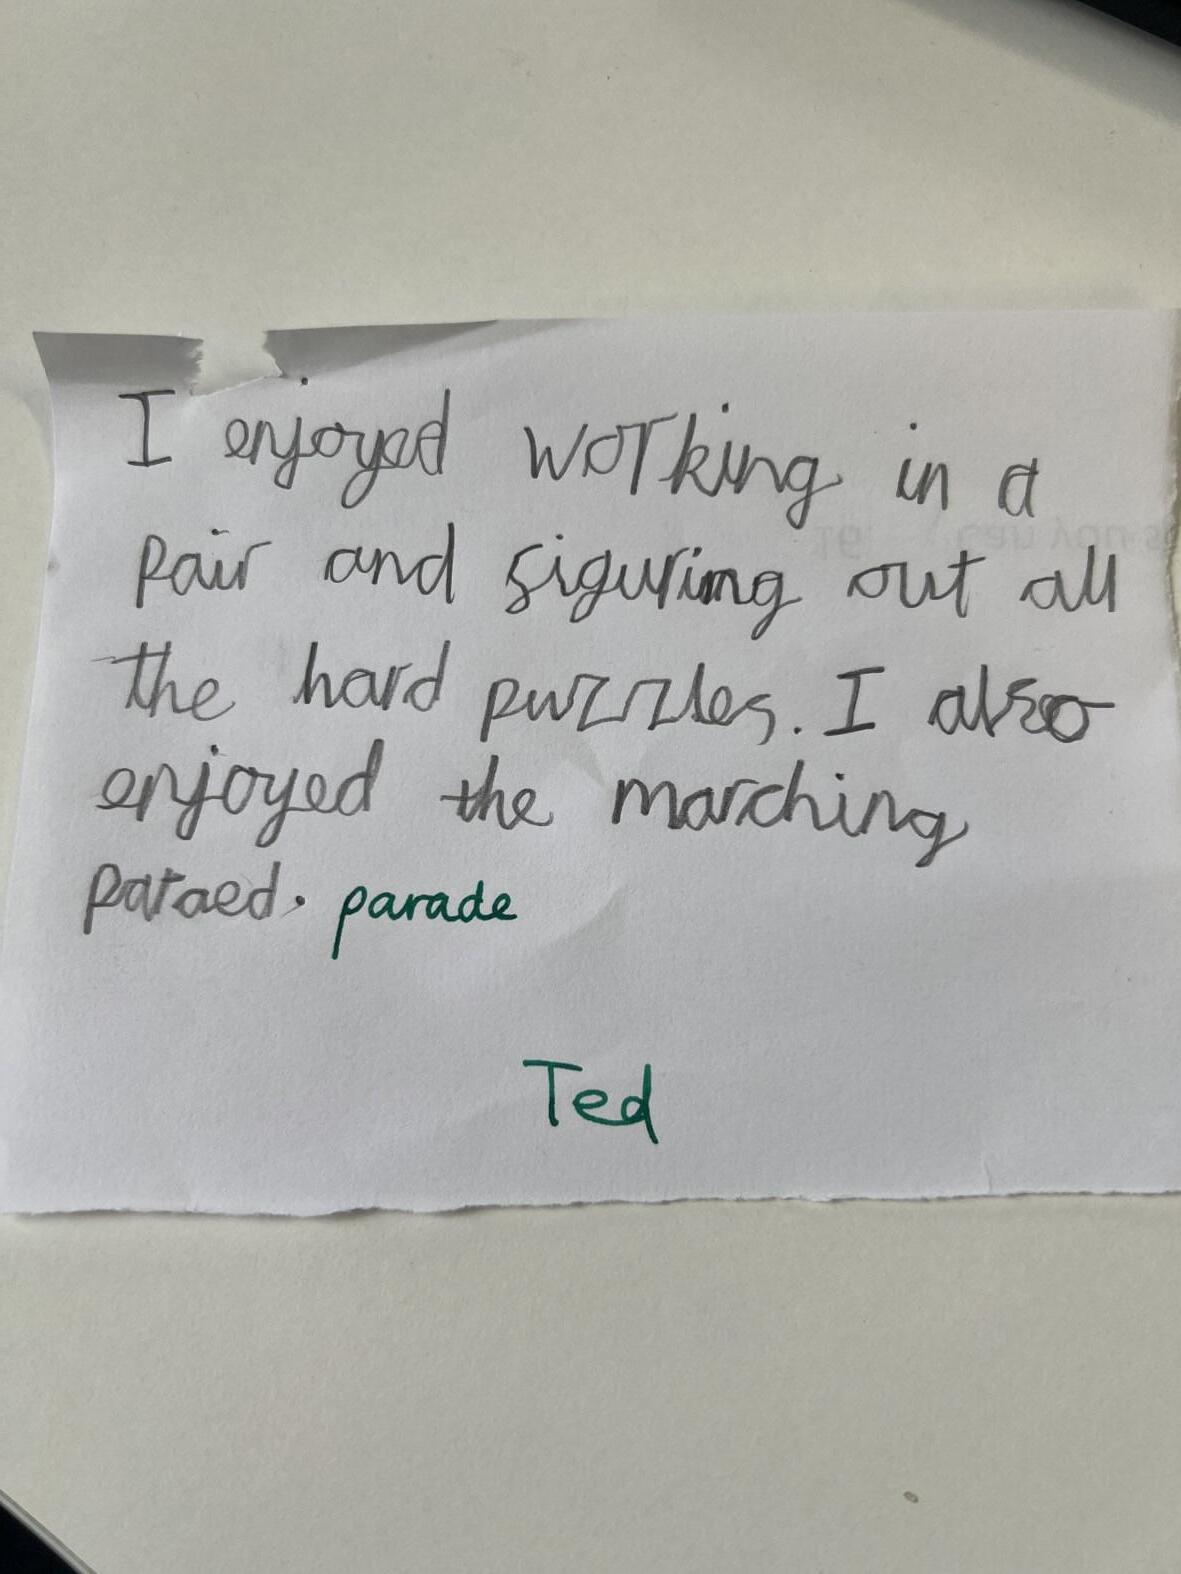 I enjoyed working in a
pair and figuring out all
the hard puzzles. I also
enjoyed the marching
paraed. parade
Ted